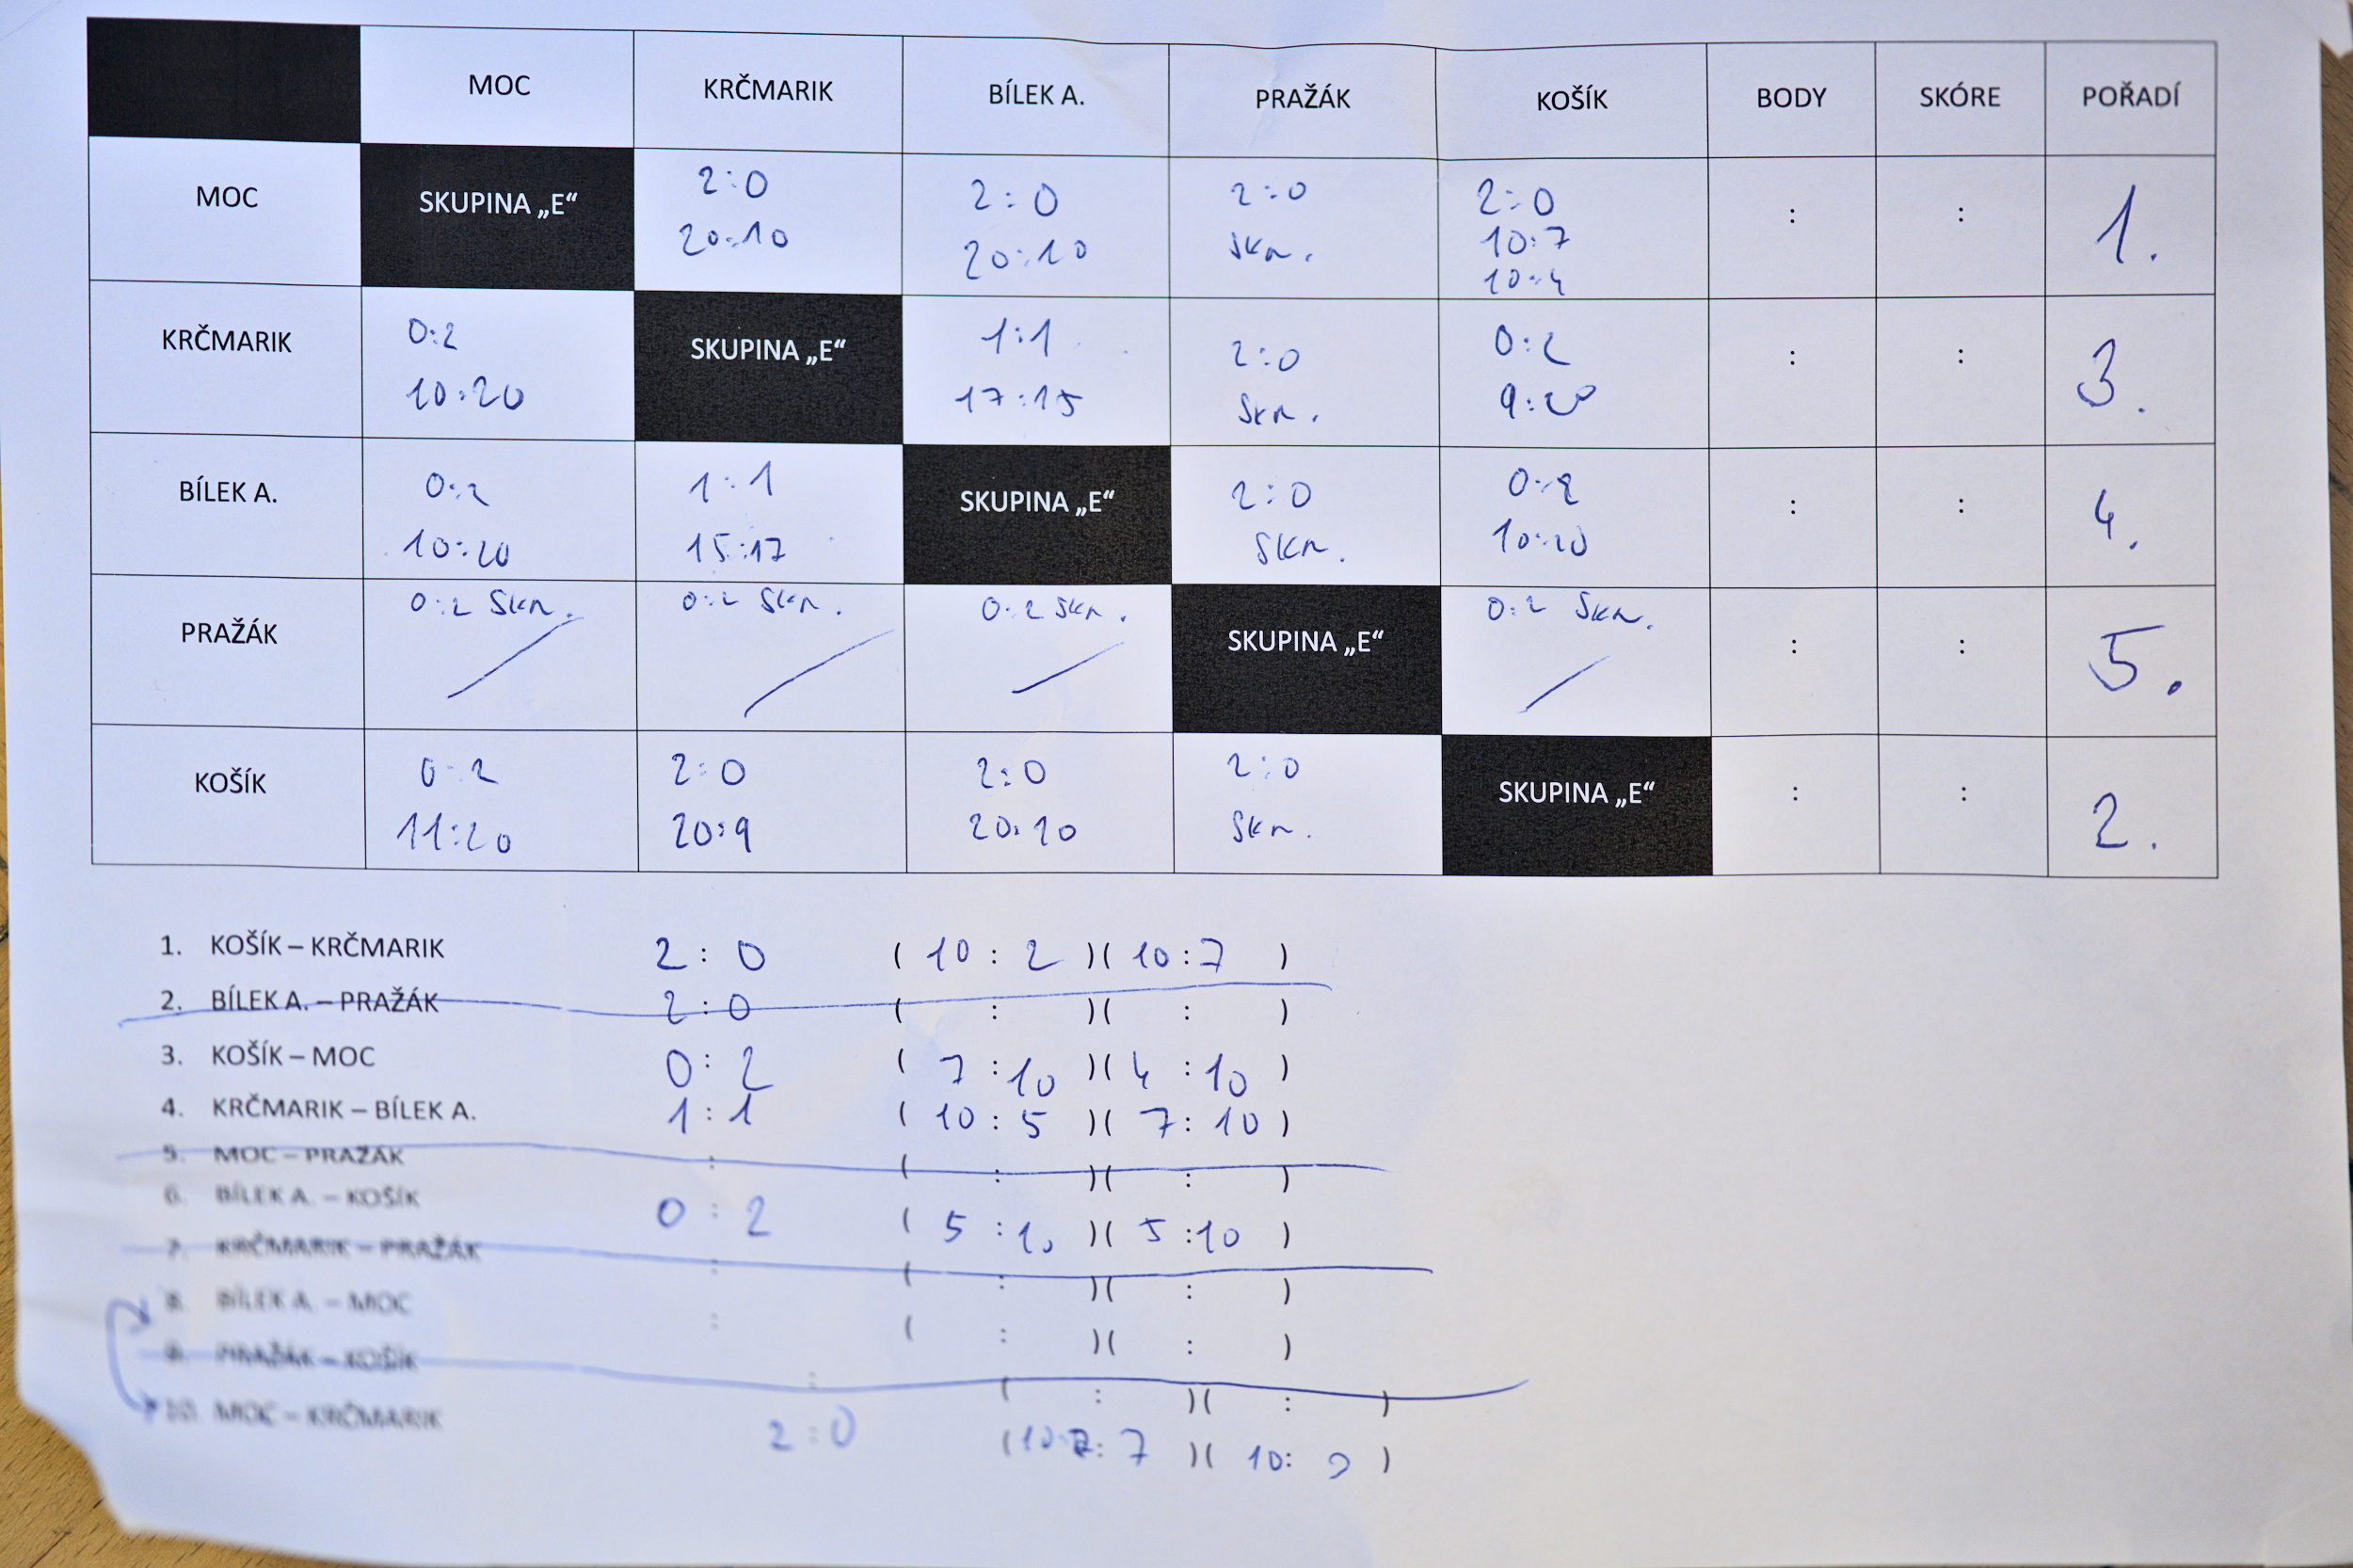 MOC KRČMARIK BÍLEK A. PRAŽÁK KOŠÍK BODY SKÓRE POŘADÍ
MOC SKUPINA „E“ 2:0 2:0 2:0 2:0 : : 1.
20:10 20:10 SKR. 10:7
10:4
KRČMARIK 0:2 SKUPINA „E“ 1:1 2:0 0:2 : : 3.
10:20 17:15 SKR. 9:20
BÍLEK A. 0:2 1:1 SKUPINA „E“ 2:0 0:2 : : 4.
10:20 15:17 SKR. 10:20
PRAŽÁK 0:2 SKR. 0:2 SKR. 0:2 SKR. SKUPINA „E“ 0:2 SKR. : : 5.
KOŠÍK 0:2 2:0 2:0 2:0 SKUPINA „E“ : : 2.
11:20 20:9 20:10 SKR.
1. KOŠÍK – KRČMARIK 2:0 (10:2)(10:7)
2. BÍLEK A. – PRAŽÁK 2:0 ( : )( : )
3. KOŠÍK – MOC 0:2 (7:10)(4:10)
4. KRČMARIK – BÍLEK A. 1:1 (10:5)(7:10)
5. MOC – PRAŽÁK : ( : )( : )
6. BÍLEK A. – KOŠÍK 0:2 (5:10)(5:10)
7. KRČMARIK – PRAŽÁK : ( : )( : )
8. BÍLEK A. – MOC : ( : )( : )
9. PRAŽÁK – KOŠÍK : ( : )( : )
10. MOC – KRČMARIK 2:0 (10 : 7)(10: )